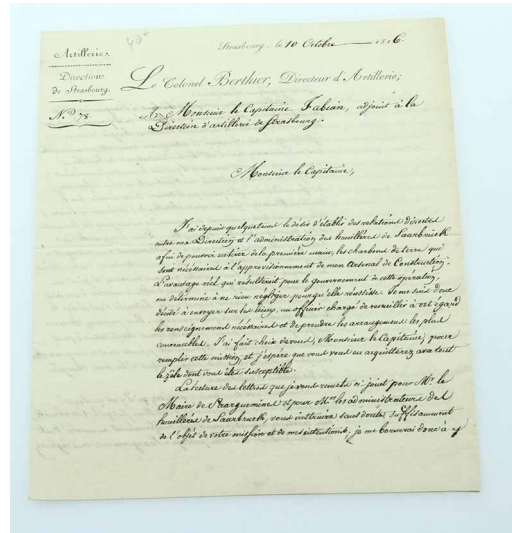 40e
Artillerie.
Direction
de Strasbourg.
N.° 78.
Strasbourg, le 10 Octobre 1816.
Le Colonel Berthier, Directeur d'Artillerie;
A Monsieur le Capitaine Fabian, adjoint à la
Direction d'artillerie de Strasbourg.
Monsieur le Capitaine,
J'ai depuis quelque tems le désir d'établir des relations directes
entre ma Direction et l'administration des houillères de Saarbruck
afin de pouvoir retirer de la première main, les charbons de terre qui
sont nécessaires à l'approvisionnement de mon Arsenal de Construction.
L'avantage réel qui résulterait pour le gouvernement de cette opération,
me détermine à ne rien négliger pour qu'elle réussisse. Je me suis donc
décidé à envoyer sur les lieux, un officier chargé de recueillir à cet égard
les renseignements nécessaires et de prendre les arrangemens les plus
convenables. J'ai fait choix de vous, Monsieur le Capitaine, pour
remplir cette mission, et j'espère que vous vous en acquitterez avec tout
le zèle dont vous êtes susceptible.
La lecture des lettres que je vous remets ci-joint pour Mr. le
Maire de Sarguemines et pour Mrs. les administrateurs des
houillères de Saarbruck, vous instruira sans doute suffisamment
de l'objet de votre mission et de mes intentions, je me bornerai donc à y